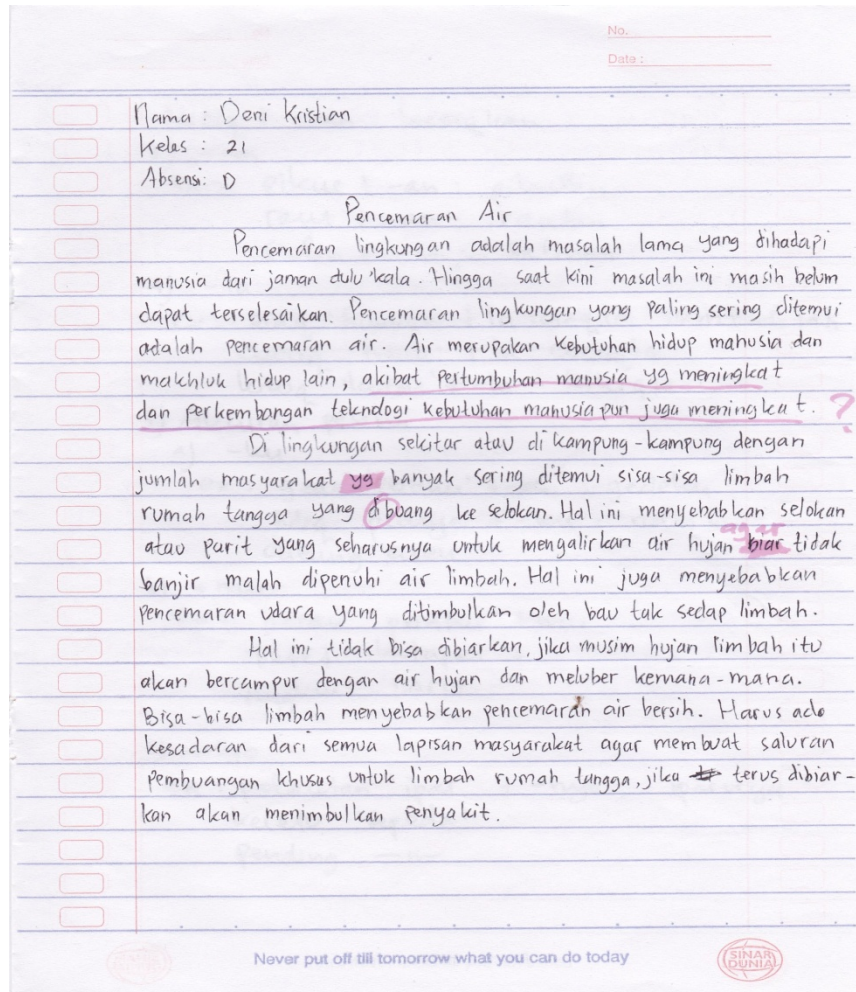 No.
Date :
Nama : Deni Kristian
Kelas : 21
Absensi: D
Pencemaran Air
Pencemaran lingkungan adalah masalah lama yang dihadapi
manusia dari jaman dulu kala. Hingga saat kini masalah ini masih belum
dapat terselesaikan. Pencemaran lingkungan yang paling sering ditemui
adalah pencemaran air. Air merupakan kebutuhan hidup manusia dan
makhluk hidup lain, akibat pertumbuhan manusia yg meningkat
dan perkembangan teknologi kebutuhan manusia pun juga meningkat. ?
Di lingkungan sekitar atau di kampung-kampung dengan
jumlah masyarakat yg banyak sering ditemui sisa-sisa limbah
rumah tangga yang dibuang ke selokan. Hal ini menyebabkan selokan
agar
atau parit yang seharusnya untuk mengalirkan air hujan biar tidak
banjir malah dipenuhi air limbah. Hal ini juga menyebabkan
pencemaran udara yang ditimbulkan oleh bau tak sedap limbah.
Hal ini tidak bisa dibiarkan, jika musim hujan limbah itu
akan bercampur dengan air hujan dan meluber kemana-mana.
Bisa-bisa limbah menyebabkan pencemaran air bersih. Harus ada
kesadaran dari semua lapisan masyarakat agar membuat saluran
pembuangan khusus untuk limbah rumah tangga, jika terus dibiar-
kan akan menimbulkan penyakit.
Never put off till tomorrow what you can do today
SINAR
DUNIA